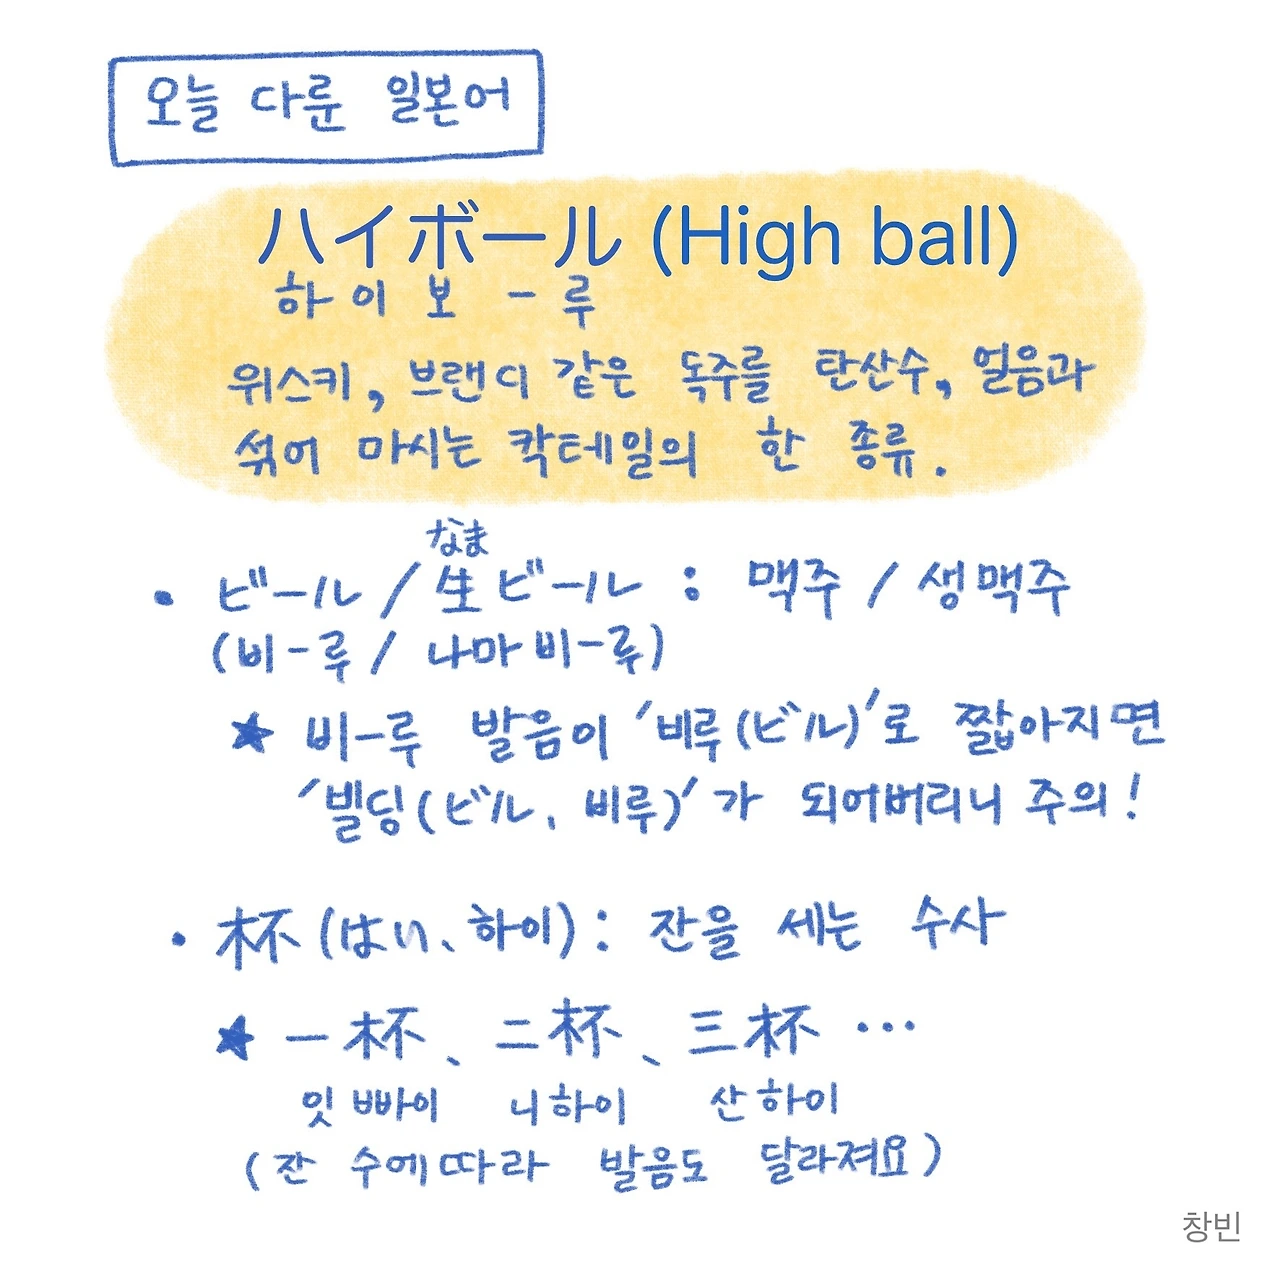 오늘 다룬 일본어
ハイボール (High ball)
하이보-루
위스키, 브랜디 같은 독주를 탄산수, 얼음과
섞어 마시는 칵테일의 한 종류.
なま
• ビール / 生ビール : 맥주 / 생맥주
(비-루 / 나마비-루)
★ 비-루 발음이 '비루(ビル)'로 짧아지면
'빌딩(ビル、비루)'가 되어버리니 주의!
• 杯(はい、하이): 잔을 세는 수사
★ 一杯、二杯、三杯 …
잇빠이 니하이 산하이
(잔 수에 따라 발음도 달라져요)
창빈